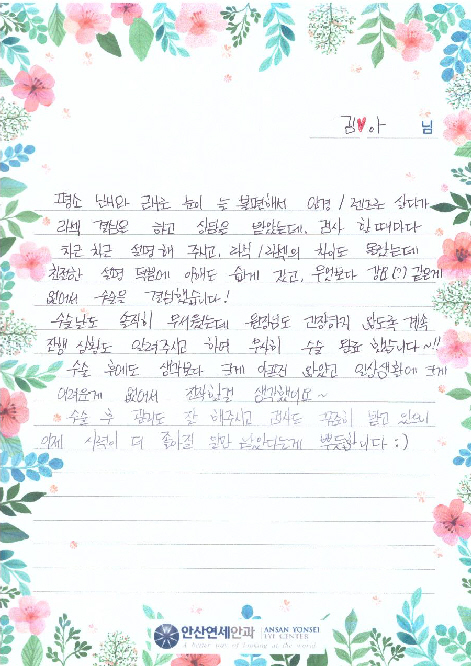 김♥아 님
평소 난시와 근시로 눈이 늘 불편해서 안경 / 렌즈로 살다가
라섹 결심을 하고 상담을 받았는데, 검사 할 때마다
차근 차근 설명해 주시고, 라식 / 라섹의 차이도 몰랐는데
친절한 설명 덕분에 이해도 쉽게 갔고, 무엇보다 강요(?) 같은게
없어서 수술을 결심했습니다!
수술날도 솔직히 무서웠는데 원장님도 긴장하지 않도록 계속
진행 상황도 알려주시고 하여 무사히 수술 완료 했습니다~!!
수술 후에도 생각보다 크게 아프지 않았고 일상생활에 크게
어려운게 없어서 잘했다 생각했어요~
수술 후 관리도 잘 해주시고 검사도 꾸준히 받고 있으니
이제 시력이 더 좋아질 일만 남았다는게 뿌듯합니다 :)
안산연세안과 ANSAN YONSEI
EYE CENTER
A better way of Looking at the world